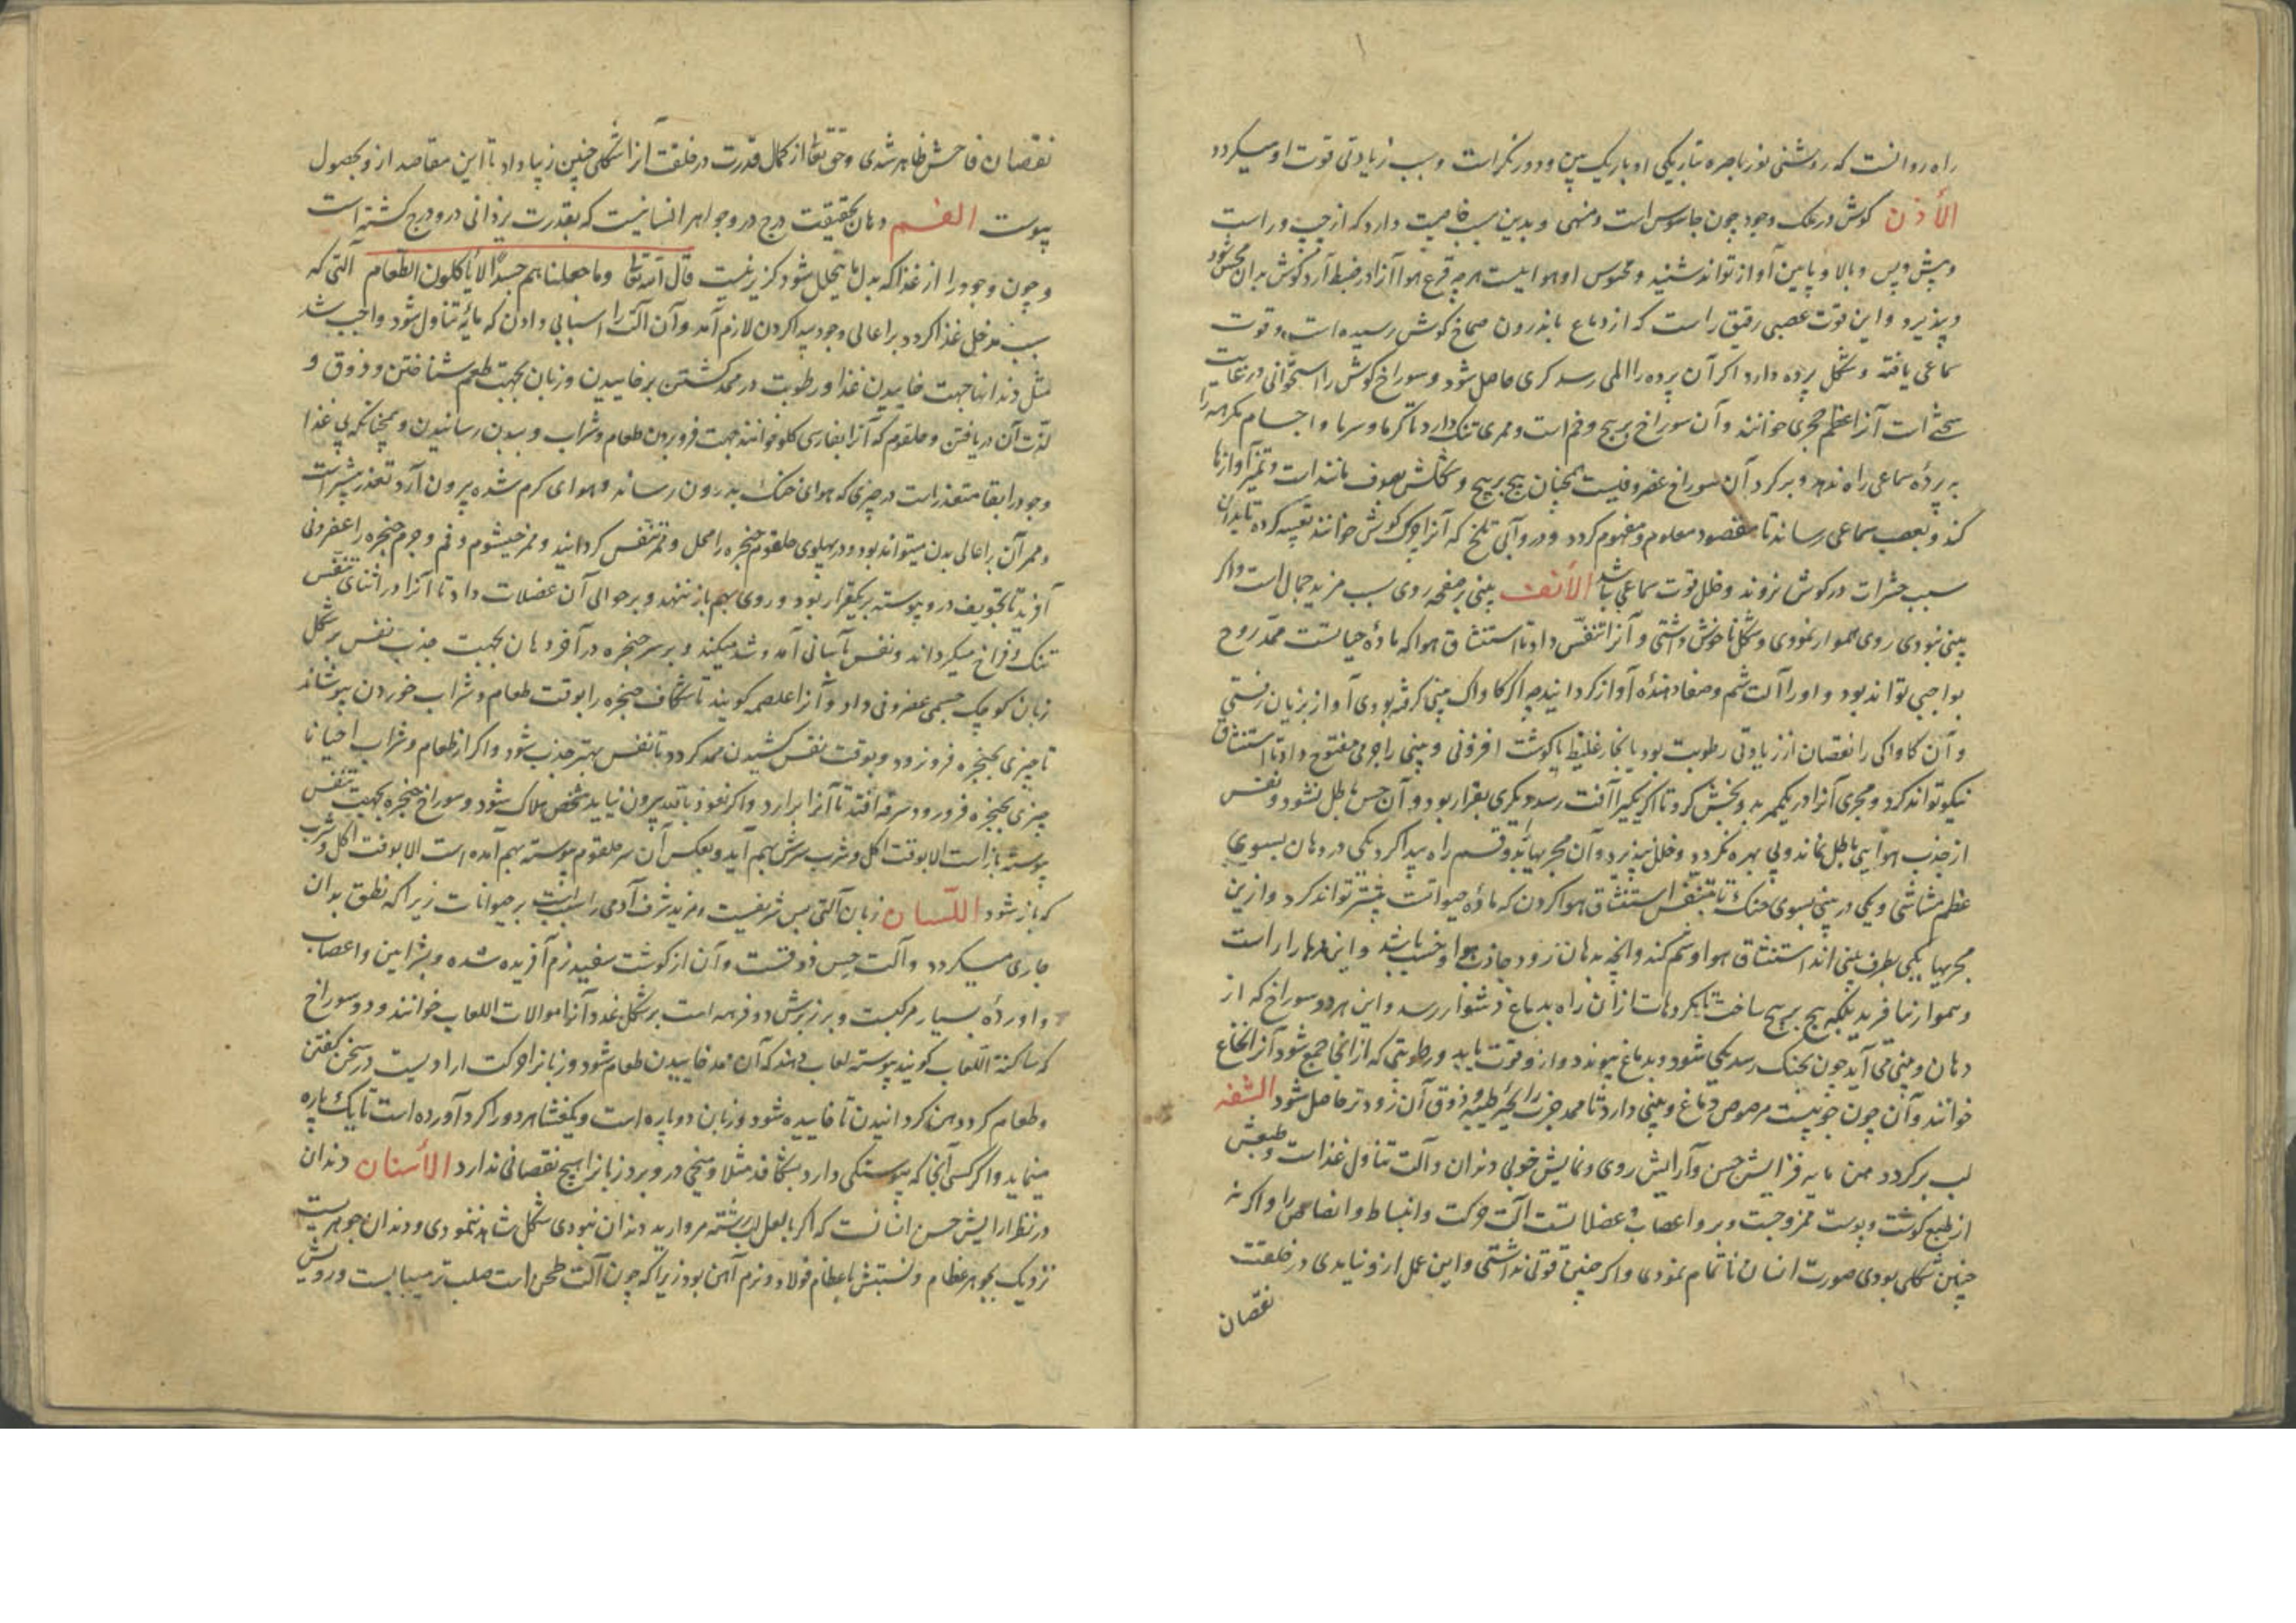 راه روانست که روشنی نور باصره بتاریکی او باریک بین و دور نکر است و سبب زیادتی قوت او میکردد
الأذن کوش در ملک وجود چون جاسوس است و منهی و بدین سبب خاصیت دارد که از چپ و راست
و پیش و پس و بالا و پایین آواز تواند شنید و محسوس او هواییست هرچه قرع هوا آنرا در ضبط آرد کوش بدان محسوس شود
و پذیرد و این قوت عصبی رقیق راست که از دماغ باندرون صماخ کوش رسیده است و قوت
سماعی یافته و شکل پرده دارد اکر آن پرده را المی رسد کری حاصل شود و سوراخ کوش را استخوانی در غایت
سختی است آنرا عظم حجری خوانند و آن سوراخ پر پیچ و خم است و ممری تنک دارد تا کرما و سرما و اجسام مکرهه را
به پردۀ سماعی راه ندهد و بر کرد آن سوراخ غضروفیست همچنان پیچ بر پیچ و شکلش بصوف مانند است و تمیز آوازها
کند و بعصب سماعی رساند تا مقصود معلوم و مفهوم کردد و درو آبی تلخ که آنرا چرک کوش خوانند تعبیه کرده تا بدان
سبب حشرات در کوش نروند و خلل قوت سماعی نباشد الأنف بینی بر صفحه روی سبب مزید جمال است و اکر
بینی نبودی روی هموار نمودی و شکل ناخوش داشتی و آنرا تنفس داد تا استنشاق هوا که مادۀ حیاتست ممد روح
بواجبی تواند بود و او را آلت شم و صفا دهندۀ آواز کردانید چه اکر کاواک بینی کرفته بودی آواز بزیان رفتی
و آن کاواکی را نقصان از زیادتی رطوبت بود یا بخار غلیظ یا کوشت افزونی و بینی را جرمی مفتوح داد تا استنشاق
نیکو تواند کرد و مجری آنرا در یک ممر بدو بخش کرد تا اکر یکی را آفت رسد دیکری بقرار بود و آن حس باطل نشود و نفس
از جذب هوا بینی باطل نماند و بی بهره نکردد و خلل نپذیرد و آن مجریها بدو قسم راه پیدا کرد یکی در دهان بسوی
عظم مشاشی و یکی در بینی بسوی حنک تا بتنفس استنشاق هوا کردن که مادۀ حیوانست بیشتر تواند کرد و ازین
مجریها یکی بطرف بینی اند استنشاق هوا و شم کند و آنچه بدهان رود جاذب هوا و خسب باشد و این مرها را راست
و هموار نیافرید بلکه پیچ بر پیچ ساخت تا مکروهات از آن راه بدماغ دشوار رسد و این هر دو سوراخ که از
دهان و بینی می آید چون بحنک رسد یکی شود و بدماغ پیوندد و از و قوت یابد و رطوبتی که از آنجا جمع شود آنرا نخاع
خوانند و آن چون جوییست مرصوص دماغ و بینی دارد تا ممد جذب رایحه طیبه و ذوق آن زودتر حاصل شود الشفه
لب بر کردد دهن مایه فزایش حسن و آرایش روی و نمایش خوبی دندان و آلت تناول غذاست و طبعش
از طبع کوشت و پوست ممزوجست و برو اعصاب و عضلاتست آلت حرکت و انبساط و انقباض را و اکر نه
چنین شکلی بودی صورت انسان ناتمام نمودی و اکر چنین قوتی نداشتی و این عمل ازو نیاید در خلقت
نقصان
نقصان فاحش ظاهر شدی و حق تعالی از کمال قدرت در خلقت آنرا شکلی چنین زیبا داد تا این مقاصد ازو بحصول
پیوست الفم دهان بحقیقت درج در و جواهر انسانیت که بقدرت یزدانی درو درج کشته است
و چون وجود را از غذا که بدل ما یتحلل شود کزیر نیست قال الله تعالی وما جعلناهم جسدا لا یأکلون الطعام آلتی که
سبب مدخل غذا کردد بر اعالی وجود پیدا کردن لازم آمد و آن آلت را اسبابی دادن که مایۀ تناول شود واجب شد
مثل دندانها جهت خاییدن غذا و رطوبت در ممد کشتن بر خاییدن و زبان بجهت طعم شناختن و ذوق و
لذت آن دریافتن و حلقوم که آنرا بفارسی کلو خوانند جهت فرو بردن طعام و شراب و ببدن رسانیدن و همچنانکه بی غذا
وجود را بقا متعذر است در چیزی که هوای خنک بدرون رساند و هوای کرم شده بیرون آرد تعذر بیشتر است
و ممر آن بر اعالی بدن میتواند بود و در پهلوی حلقوم حنجره را محل و ممر تنفس کردانید و ممر خیشوم و فم و جرم حنجره را غضروفی
آفرید تا تجویف درو پیوسته بر یکقرار بود و روی بهم باز ننهد و بر حوالی آن عضلات داد تا آنرا در اثنای تنفس
تنک و فراخ میکرداند و نفس بآسانی آمد و شد میکند و بر سر حنجره در آخر دهان بجهت جذب نفس بر شکل
زبان کوچک جسمی غضروفی داد و آنرا غلصمه کویند تا شکاف حنجره را بوقت طعام و شراب خوردن بپوشاند
تا چیزی بحنجره فرو نرود و بوقت نفس کشیدن ممد کردد تا نفس بهتر جذب شود و اکر از طعام و شراب احیانا
چیزی بحنجره فرو رود سرفه افتد تا آنرا برآرد و اکر نعوذ بالله بیرون نیاید شخص هلاک شود و سوراخ حنجره بجهت تنفس
پیوسته بازاست الا بوقت اکل و شرب سرش بهم آید و بعکس آن سر حلقوم پیوسته بهم آمده است الا بوقت اکل و شرب
که باز شود اللسان زبان آلتی بس شریفست و مزید شرف آدمی را سببست بر حیوانات زیرا که نطق بدان
جاری میکردد و آلت حس ذوقست و آن از کوشت سفید نرم آفریده شده و بشرایین و اعصاب
و اوردۀ بسیار مرکبست و بر زیرش دو فرهه است بر شکل غدد و آنرا موالات اللعاب خوانند و دو سوراخ
که ساکبة اللعاب کویند پیوسته لعاب دهند که آن ممد خاییدن طعام شود و زبانرا حرکت ارادیست در سخن کفتن
و طعام کرد دهن کردانیدن تا خاییده شود و زبان دو پاره است و یک غشا هر دو را کرد آورده است تا یک پاره
مینماید و اکر کسی آنجا که پیوستکی دارد بشکافد مثلا و میخی درو برد زبانرا هیچ نقصانی ندارد الأسنان دندان
در نظر آرایش حسن انسانست که اکر با لعل لب رشته مروارید دندان نبودی شکل شاهد ننمودی و دندان جوهریست
نزدیک بجوهر عظام و نسبتش با عظام فولاد و نرم آهن بود زیرا که چون آلت طحن است صلب تر میبایست و رویش